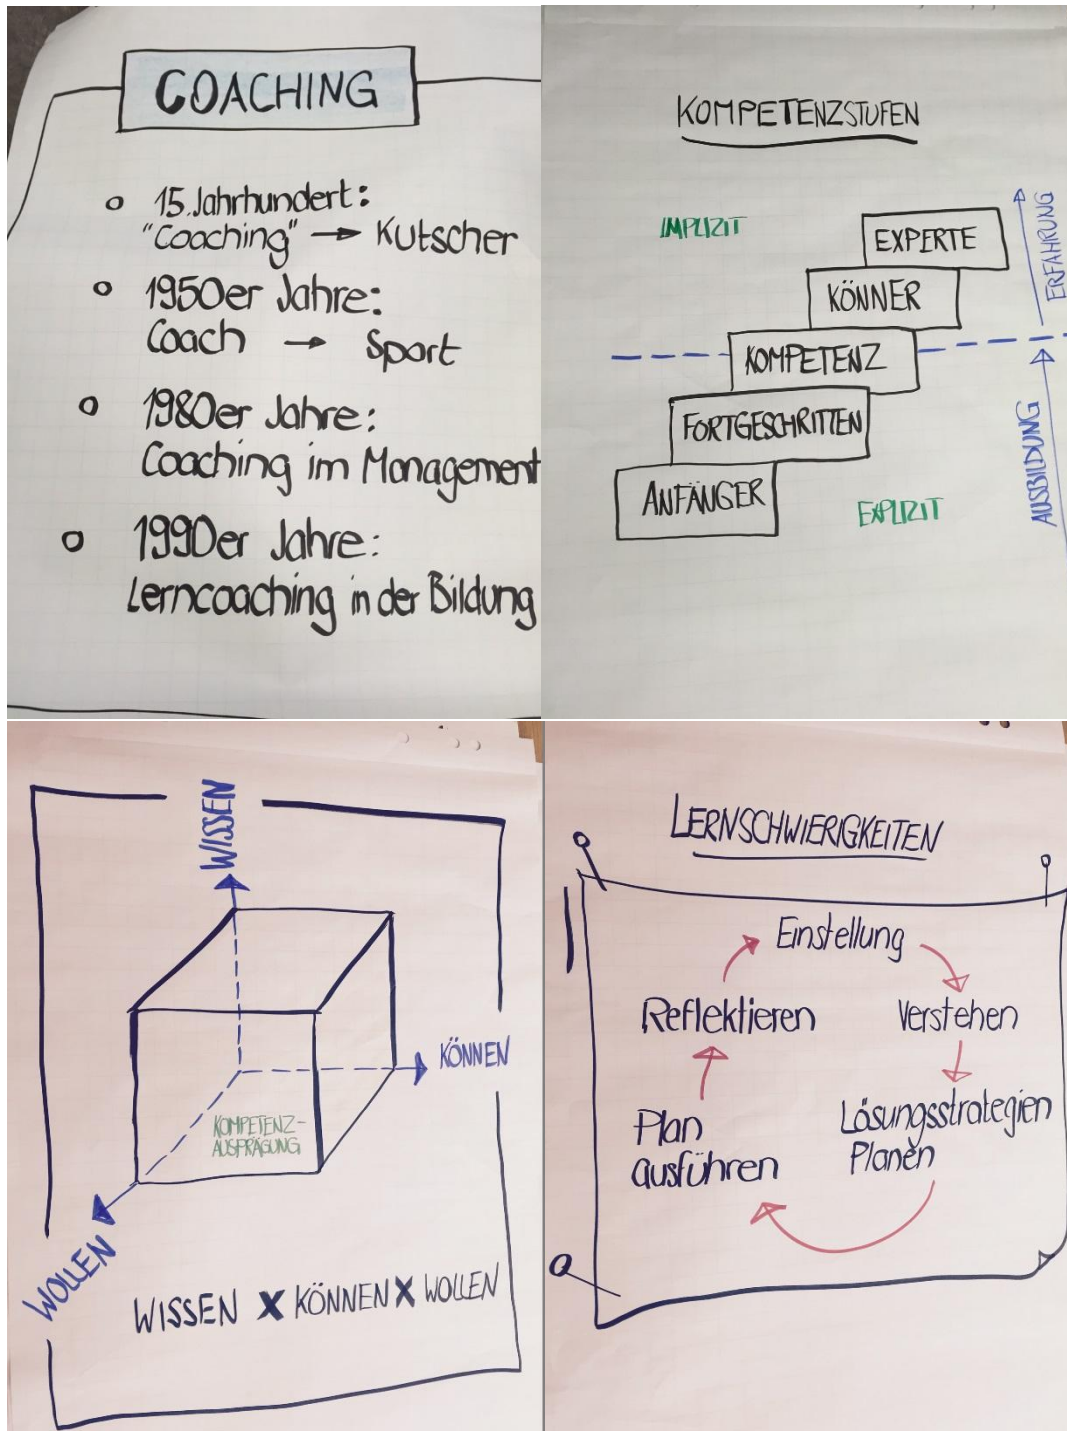 COACHING
15. Jahrhundert:
"Coaching" → Kutscher
1950er Jahre:
Coach → Sport
1980er Jahre:
Coaching im Management
1990er Jahre:
Lerncoaching in der Bildung
KOMPETENZSTUFEN
IMPLIZIT
EXPERTE
KÖNNER
KOMPETENZ
FORTGESCHRITTEN
ANFÄNGER
EXPLIZIT
ERFAHRUNG
AUSBILDUNG
WISSEN
KÖNNEN
KOMPETENZ-
AUSPRÄGUNG
WOLLEN
WISSEN X KÖNNEN X WOLLEN
LERNSCHWIERIGKEITEN
Einstellung
Verstehen
Lösungsstrategien
Planen
Plan
ausführen
Reflektieren